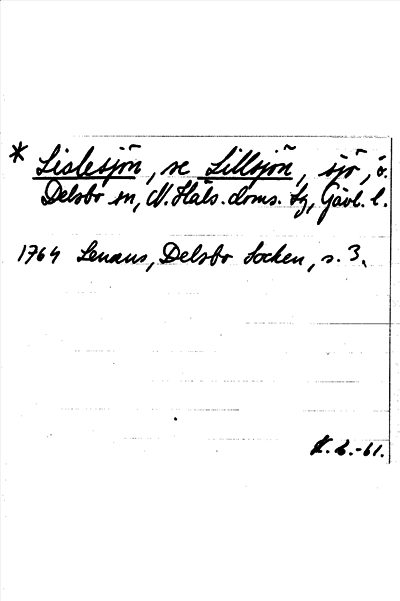 * Lislesjön, se Lillsjön, sjö, i
Delsbo sn, N. Häls. doms. tg, Gävl. l.
1764 Lenæus, Delsbo Socken, s. 3.
K. L. -61.